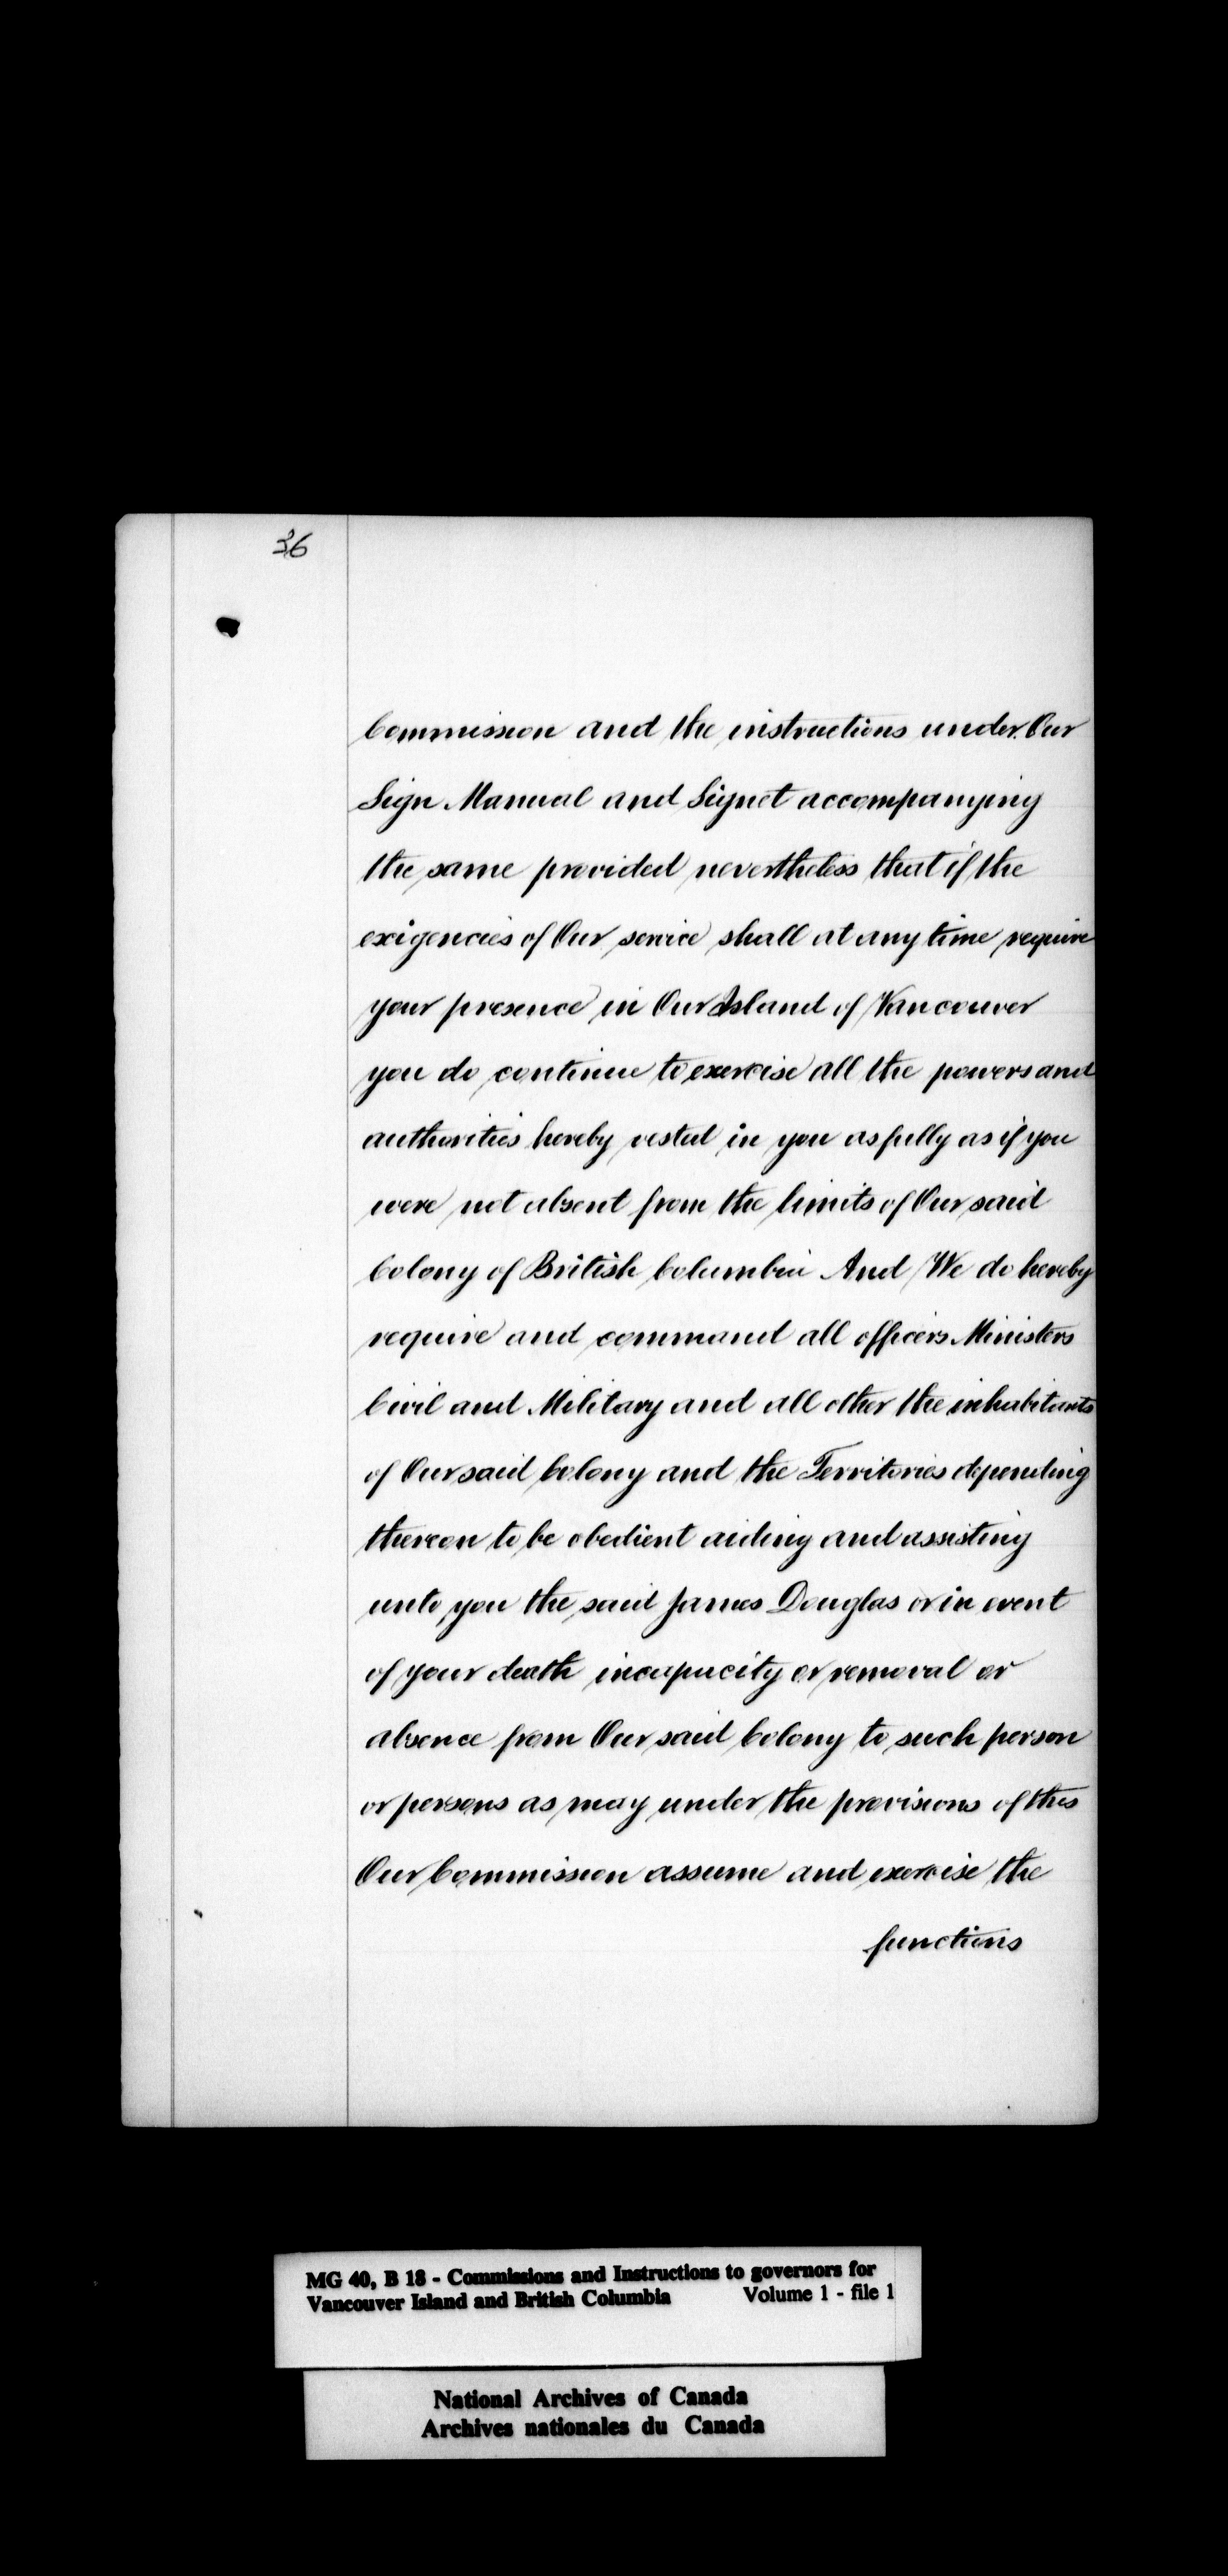 36
Commission and the instructions under Our
Sign Manual and Signet accompanying
the same provided nevertheless that if the
exigencies of Our service shall at any time require
your presence in Our Island of Vancouver
you do continue to exercise all the powers and
authorities hereby vested in you as fully as if you
were not absent from the limits of Our said
Colony of British Columbia And We do hereby
require and command all officers Ministers
Civil and Military and all other the inhabitants
of Our said Colony and the Territories depending
thereon to be obedient aiding and assisting
unto you the said James Douglas or in event
of your death incapacity or removal or
absence from Our said Colony to such person
or persons as may under the provisions of this
Our Commission assume and exercise the
functions
MG 40, B 18 - Commissions and Instructions to governors for
Vancouver Island and British Columbia Volume 1 - file 1
National Archives of Canada
Archives nationales du Canada